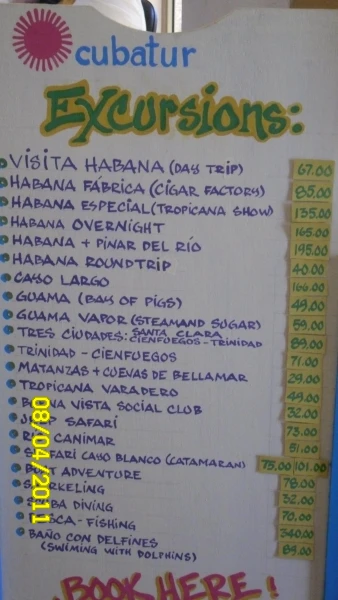 cubatur
Excursions:
VISITA HABANA (DAY TRIP) 67.00
HABANA FÁBRICA (CIGAR FACTORY) 85.00
HABANA ESPECIAL (TROPICANA SHOW) 135.00
HABANA OVERNIGHT 165.00
HABANA + PINAR DEL RÍO 195.00
HABANA ROUNDTRIP 40.00
CAYO LARGO 166.00
GUAMA (BAY OF PIGS) 49.00
GUAMA VAPOR (STEAM AND SUGAR) 59.00
TRES CIUDADES: SANTA CLARA CIENFUEGOS - TRINIDAD 89.00
TRINIDAD - CIENFUEGOS 71.00
MATANZAS + CUEVAS DE BELLAMAR 29.00
TROPICANA VARADERO 49.00
BUENA VISTA SOCIAL CLUB 32.00
JEEP SAFARI 73.00
RIO CANIMAR 51.00
SAFARI CAYO BLANCO (CATAMARAN) 75.00 101.00
BOAT ADVENTURE 78.00
SNORKELING 32.00
SCUBA DIVING 70.00
PESCA - FISHING 340.00
BAÑO CON DELFINES 89.00
(SWIMING WITH DOLPHINS)
BOOK HERE!
08/04/2011